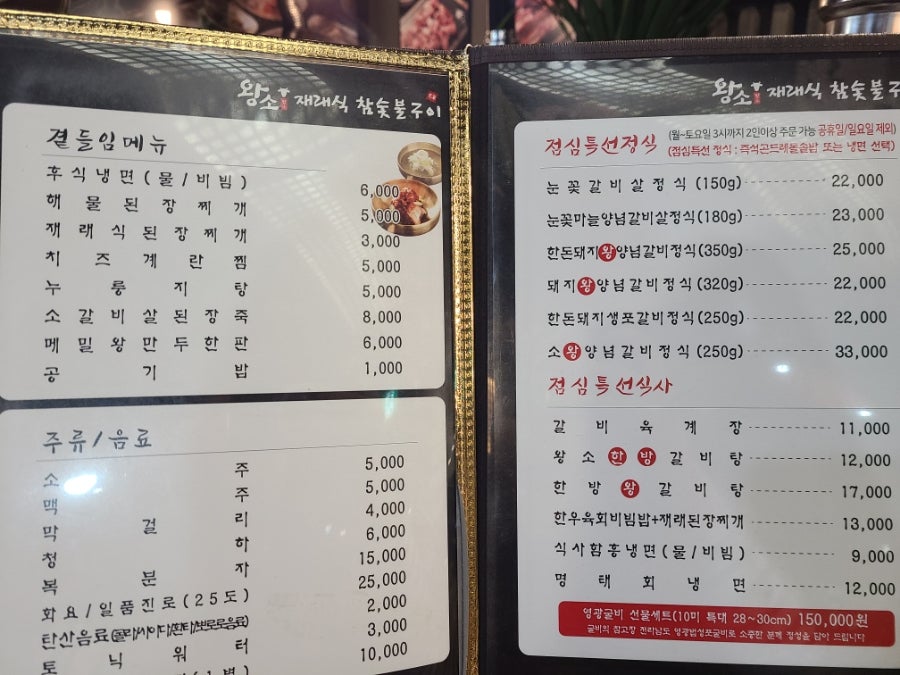 왕소 재래식 참숯불구이
곁들임메뉴
후식냉면(물/비빔) 6,000
해물된장찌개 5,000
재래식된장찌개 3,000
치즈계란찜 5,000
누룽지탕 5,000
소갈비살된장죽 8,000
메밀왕만두한판 6,000
공기밥 1,000
주류/음료
소주 5,000
맥주 5,000
막걸리 4,000
청하 6,000
복분자 15,000
화요/일품진로(25도) 25,000
탄산음료(콜라/사이다/환타/뽀로로음료) 2,000
토닉워터 3,000
10,000
왕소 재래식 참숯불구
점심특선정식 (월~토요일 3시까지 2인이상 주문 가능 공휴일/일요일 제외)
(점심특선 정식 : 즉석곤드레돌솥밥 또는 냉면 선택)
눈꽃갈비살정식(150g) 22,000
눈꽃마늘양념갈비살정식(180g) 23,000
한돈돼지왕양념갈비정식(350g) 25,000
돼지왕양념갈비정식(320g) 22,000
한돈돼지생포갈비정식(250g) 22,000
소왕양념갈비정식(250g) 33,000
점심특선식사
갈비육계장 11,000
왕소한방갈비탕 12,000
한방왕갈비탕 17,000
한우육회비빔밥+재래된장찌개 13,000
식사함흥냉면(물/비빔) 9,000
명태회냉면 12,000
영광굴비 선물세트(10미 특대 28~30cm) 150,000원
굴비의 참고장 전라남도 영광법성포굴비로 소중한 분께 정성을 담아 드립니다